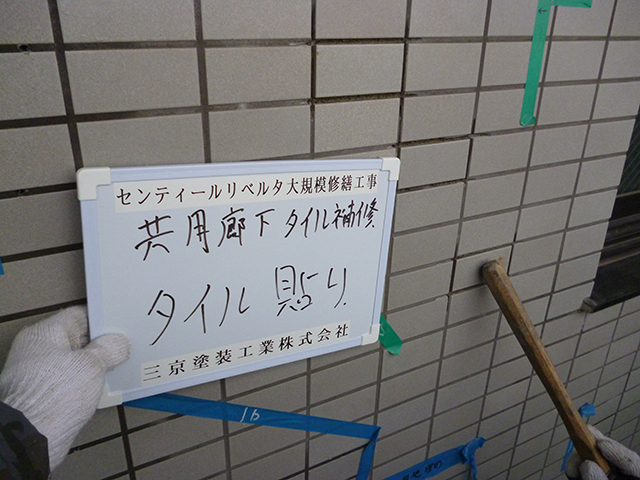 センティールリベルタ大規模修繕工事
共用廊下タイル補修
タイル 貼り
三京塗装工業株式会社
16